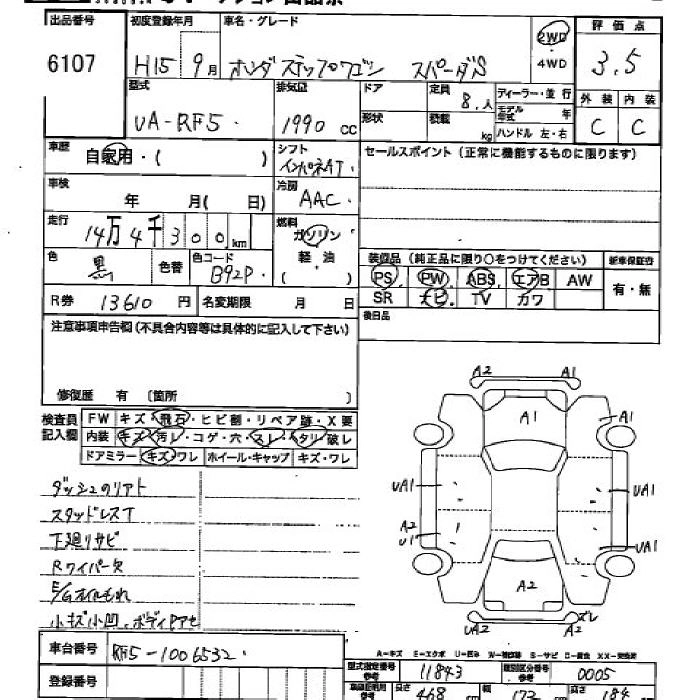 出品番号 初度登録年月 車名・グレード 評価点
6107 H15 9月 ホンダ ステップワゴン スパーダS 2WD 4WD 3.5
型式 排気量 ドア 定員 8.人 ディーラー・並行 外装 内装
UA-RF5. 1990 cc 形状 積載 kg モデル年式 年 ハンドル 左・右 C C
車歴 自家用・( ) シフト インパネAT. セールスポイント (正常に機能するものに限ります)
車検 年 月( 日) 冷房 AAC.
走行 14万4千300km 燃料 ガソリン 軽油 ( )
色 黒 色替 色コード B92P. 装備品 (純正品に限り○をつけてください) 新車保証書
PS PW ABS エアB AW 有・無
R券 13610円 名変期限 月 日 SR ナビ. TV カワ
注意事項申告欄(不具合内容等は具体的に記入して下さい) 後日品
修復歴 有 〔箇所 〕
検査員記入欄 FW キズ・飛石・ヒビ割・リペア跡・X要
内装 キズ・汚レ・コゲ・穴・スレ・タリ・破レ
ドアミラー キズ・ワレ ホイール・キャップ キズ・ワレ
ダッシュのリアト
スタッドレスT
下廻リサビ
Rワイパー欠
E/Gオイルもれ
小キズ小凹、ボディPアセ
A2 A1
A1 A1
UA1 UA1
A2 U1 UA1
A2
UA2 A2 ズレ
A-キズ E-エクボ U-凹み W-補修跡 S-サビ C-腐食 XX-交換済
車台番号 RF5-1006532. 型式指定番号 参考 11843 類別区分番号 参考 0005
登録番号 長さ 468 cm 幅 172 cm 高さ 184